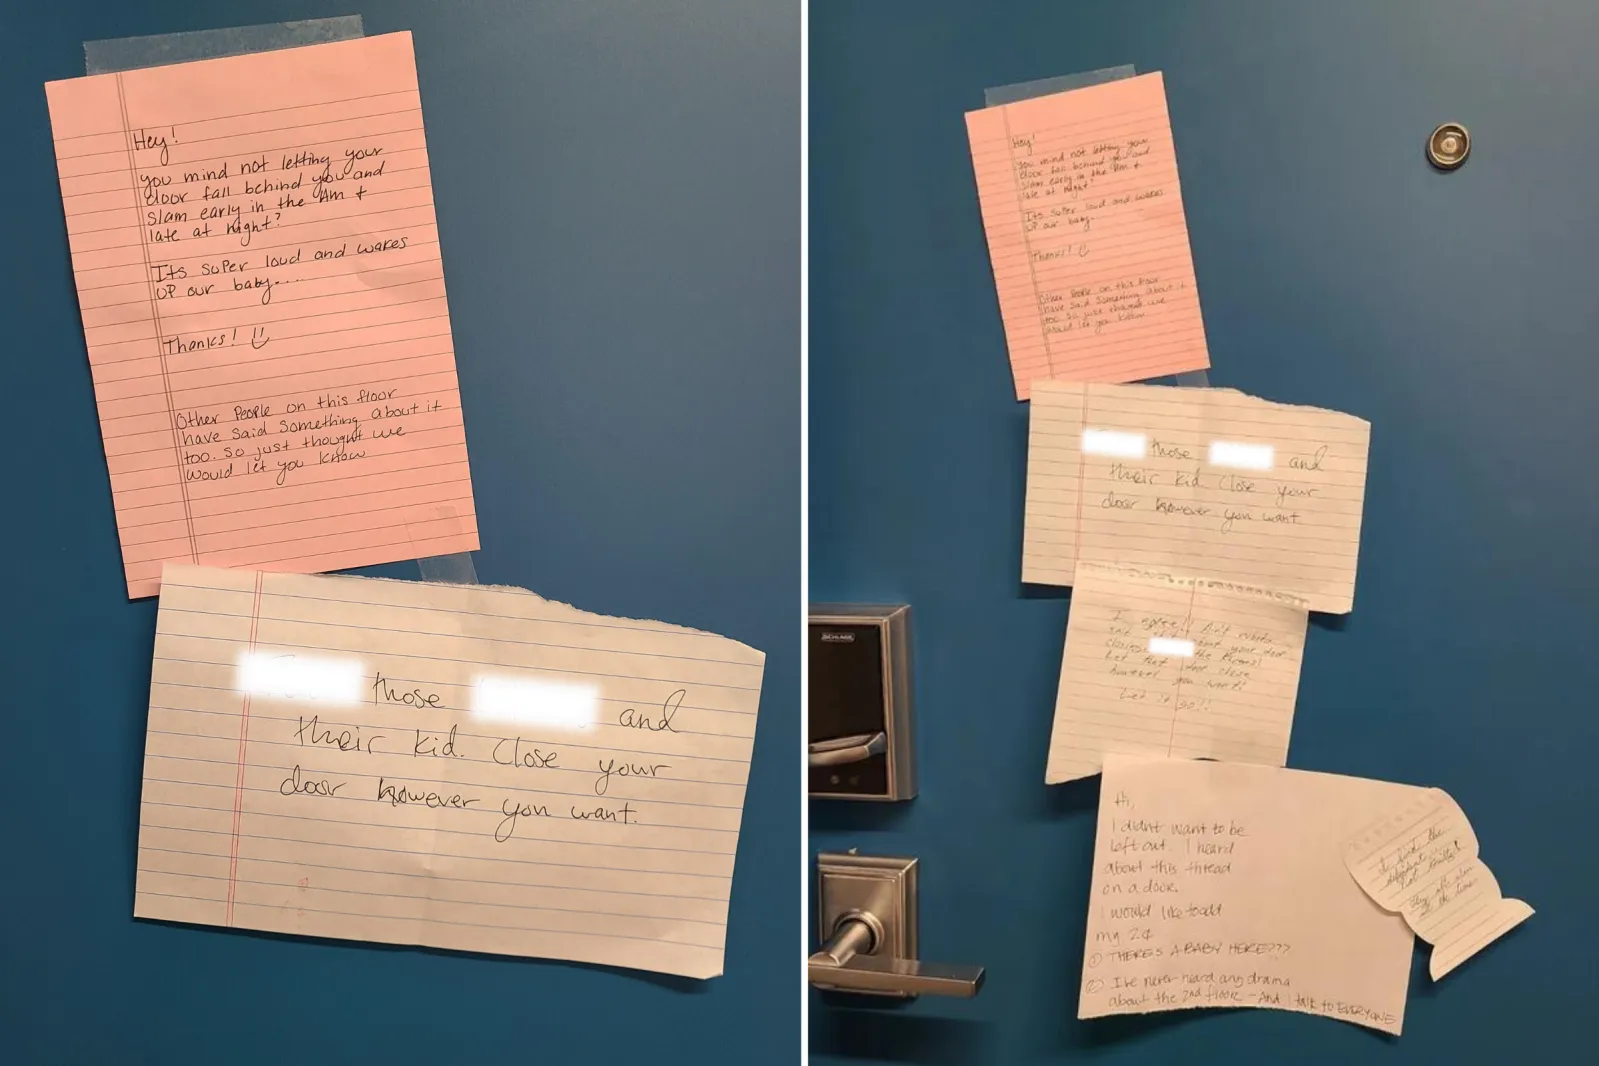 Hey!
you mind not letting your
door fall behind you and
slam early in the Am +
late at night?
Its super loud and wakes
up our baby....
Thanks!
Other People on this floor
have said something about it
too. so just thought we
would let you know
those and
their kid. Close your
door however you want.
Hey!
you mind not letting your
door fall behind you and
slam early in the Am +
late at night?
Its super loud and wakes
up our baby.
Thanks!
Other People on this floor
have said something about it
too. so just thought we
would let you know
those and
their kid. Close your
door however you want.
SCHLAGE
I agree!
your door
closing the
Let that door close
however you want!
Let it go!!
Hi,
I didnt want to be
left out. I heard
about this thread
on a door.
I would like to add
my 2¢
① THERE'S A BABY HERE???
② I've never heard any drama
about the 2nd floor - And I talk to EVERYONE
I find the